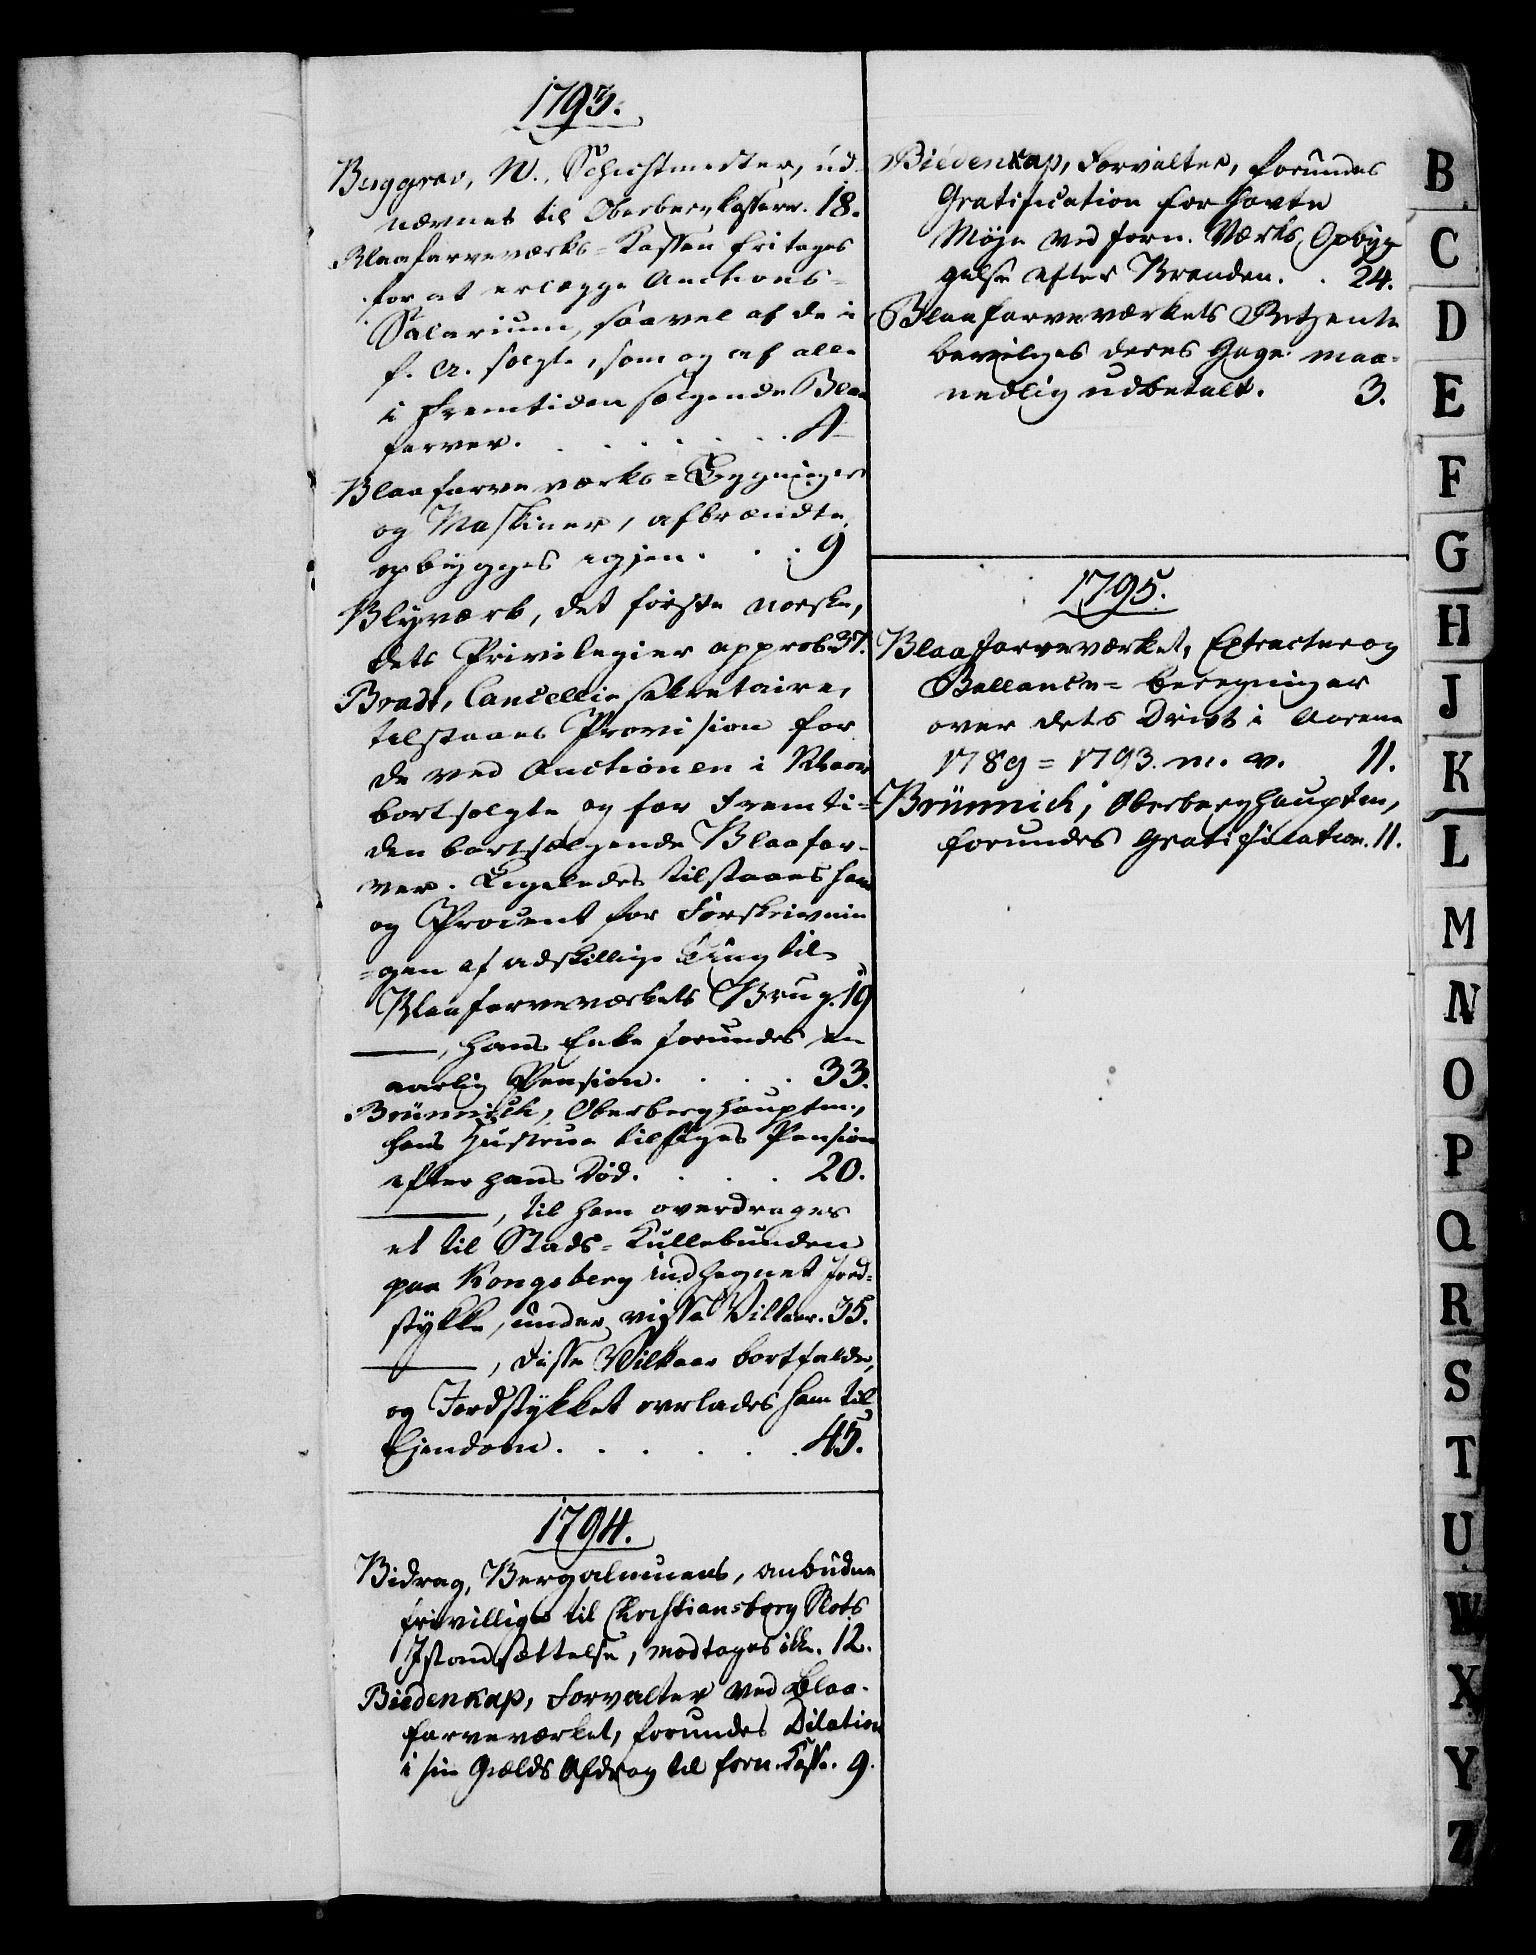 1793.
Buggrav, N., Schichtmester, ud-
nævnes til Oberberg Casserer. 18.
Blaafarveværks-Kassen fritages
for at erlægge Auctions-
Salarium, saavel af de i
f. A. solgte, som og af alle
i Fremtiden sælgende Blaa
farver. . . . . . . 4
Blaafarveværks-Bygninger
og Maskiner, afbrændte,
opbygges igjen. . . 9
Blyværk, det første norske,
dets Privilegier approb. 37.
Bradt, Cancellie sekretaire,
tilstaaes Provision for
de ved Auctionen i
bortsolgte og for Fremti-
den bortsælgende Blaafar-
ver. Ligeledes tilstaaes ham
og Procent for Forskrivnin
=gen af adskillige Ting til
Blaafarveværkets Brug. 19
——, hans Enke forundes en
aarlig Pension. . . . 33.
Brünnich, Oberberghauptm.,
hans Hustrue tilsiges Pension
efter hans Død. . . . 20.
——, til ham overdrages
et til Stads-Kullebunden
paa Kongsberg indhegnet Jord-
stykke, under visse Vilkaar. 35.
——, disse Vilkaar bortfalde,
og Jordstykket overlades ham til
Ejendom. . . . . . 45.
1794.
Bidrag, Bergalmuens, anbudne
frivillige til Christiansborg Slots
Istandsættelse, modtages ikke. 12.
Biedenkap, Forvalter ved Blaa-
farveværket, forundes Dilation
i sin Gælds Afdrag til forn. Casse. 9.
Biedenkap, Forvalter, forundes
Gratification for havte
Møje ved forn. Værks Opbyg
gelse efter Branden. . 24.
Blaafarveværkets Betjente
bevilges deres Gage maa-
nedlig udbetalt. 3.
1795.
Blaafarveværket, Extracter og
Ballance-beregninger
over dets Drivt i Aarene
1789-1793. m. v. 11.
Brünnich, Oberberghauptm,
forundes Gratification. 11.
B
C
D
E
F
G
H
J
K
L
M
N
O
P
Q
R
S
T
U
W
X
Y
Z